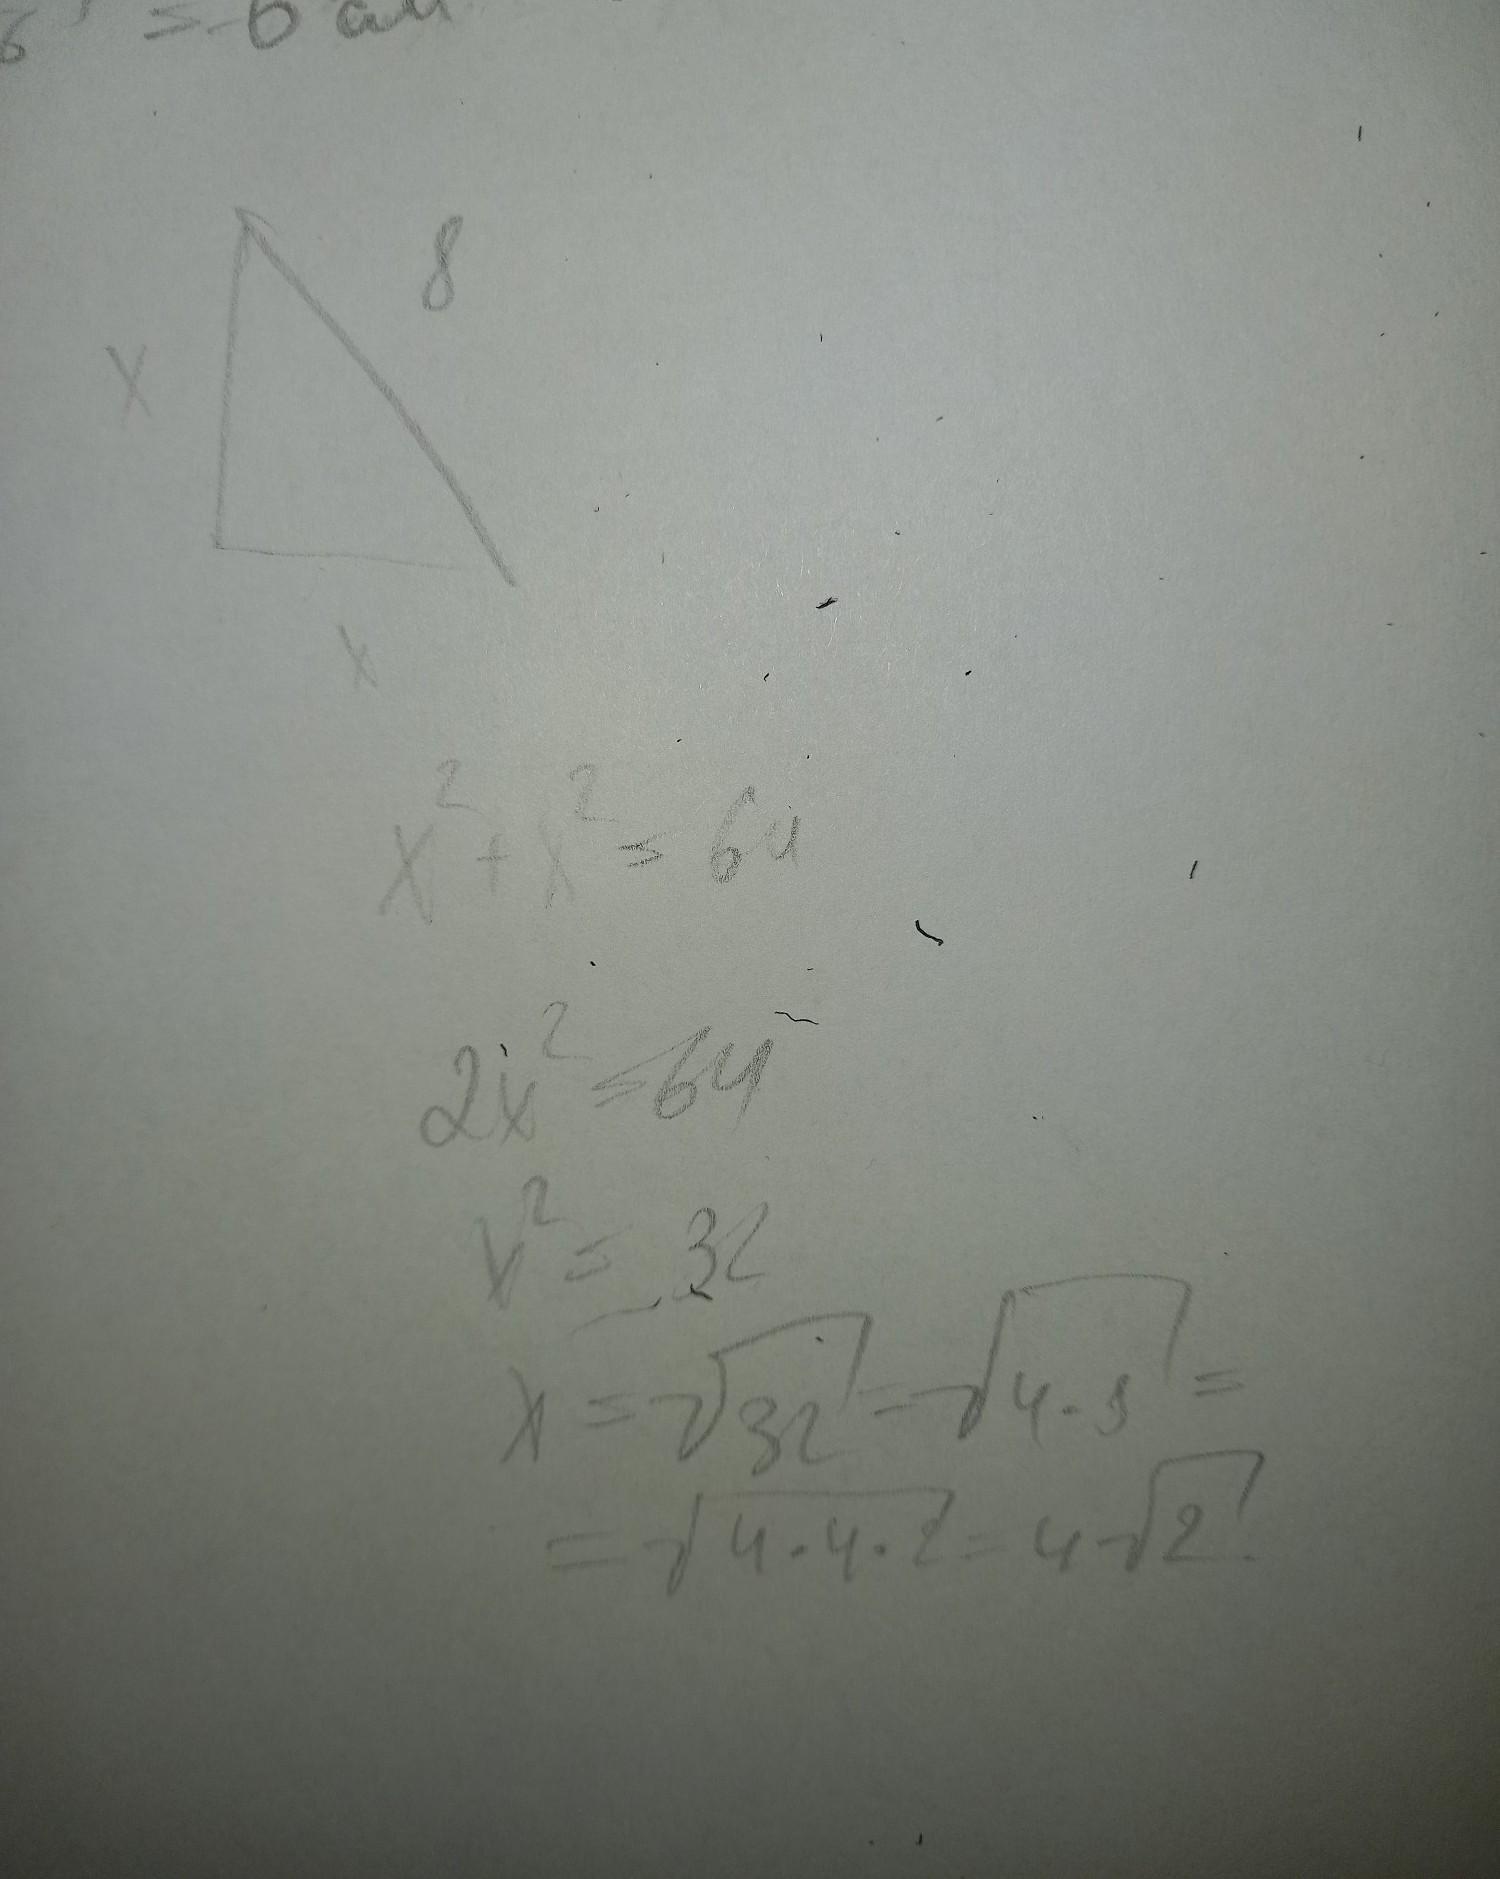 = 6 см
8
x
x
x² + x² = 64
2x² = 64
x² = 32
x = √32 = √4·8 =
= √4·4·2 = 4√2.